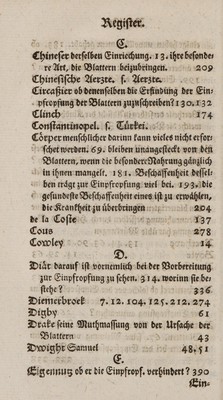 Register.
C.
Chineser derselben Einrichung. 13. ihre besonde-
re Art, die Blattern beizubringen. 209
Chinesische Aerzte. s. Aerzte.
Circaßier ob denenselben die Erfindung der Ein-
pfropfung der Blattern zuzuschreiben? 130. 132
Clinch 174
Constantinopel. s. Türkei.
Cörper menschlicher darinn kann vieles nicht erfor-
schet werden. 69. bleiben unangesteckt von den
Blattern, wenn die besondere Nahrung gänzlich
in ihnen mangelt. 181. Beschaffenheit dessel-
ben trägt zur Einpfropfung viel bei. 193. die
gesundeste Beschaffenheit eines ist zu erwählen,
die Krankheit zu überbringen 204
de la Coste 137
Cous 278
Cowley 14
D.
Diät darauf ist vornemlich bei der Vorbereitung
zur Einpfropfung zu sehen. 314. worinn sie be-
stehe? 336
Diemerbroek 7. 12. 104. 125. 212. 274
Digby 61
Drake seine Muthmassung von der Ursache der
Blattern 43
Dwight Samuel 48. 51
E.
Eigennutz ob er die Einpfropf. verhindert? 390
Ein-